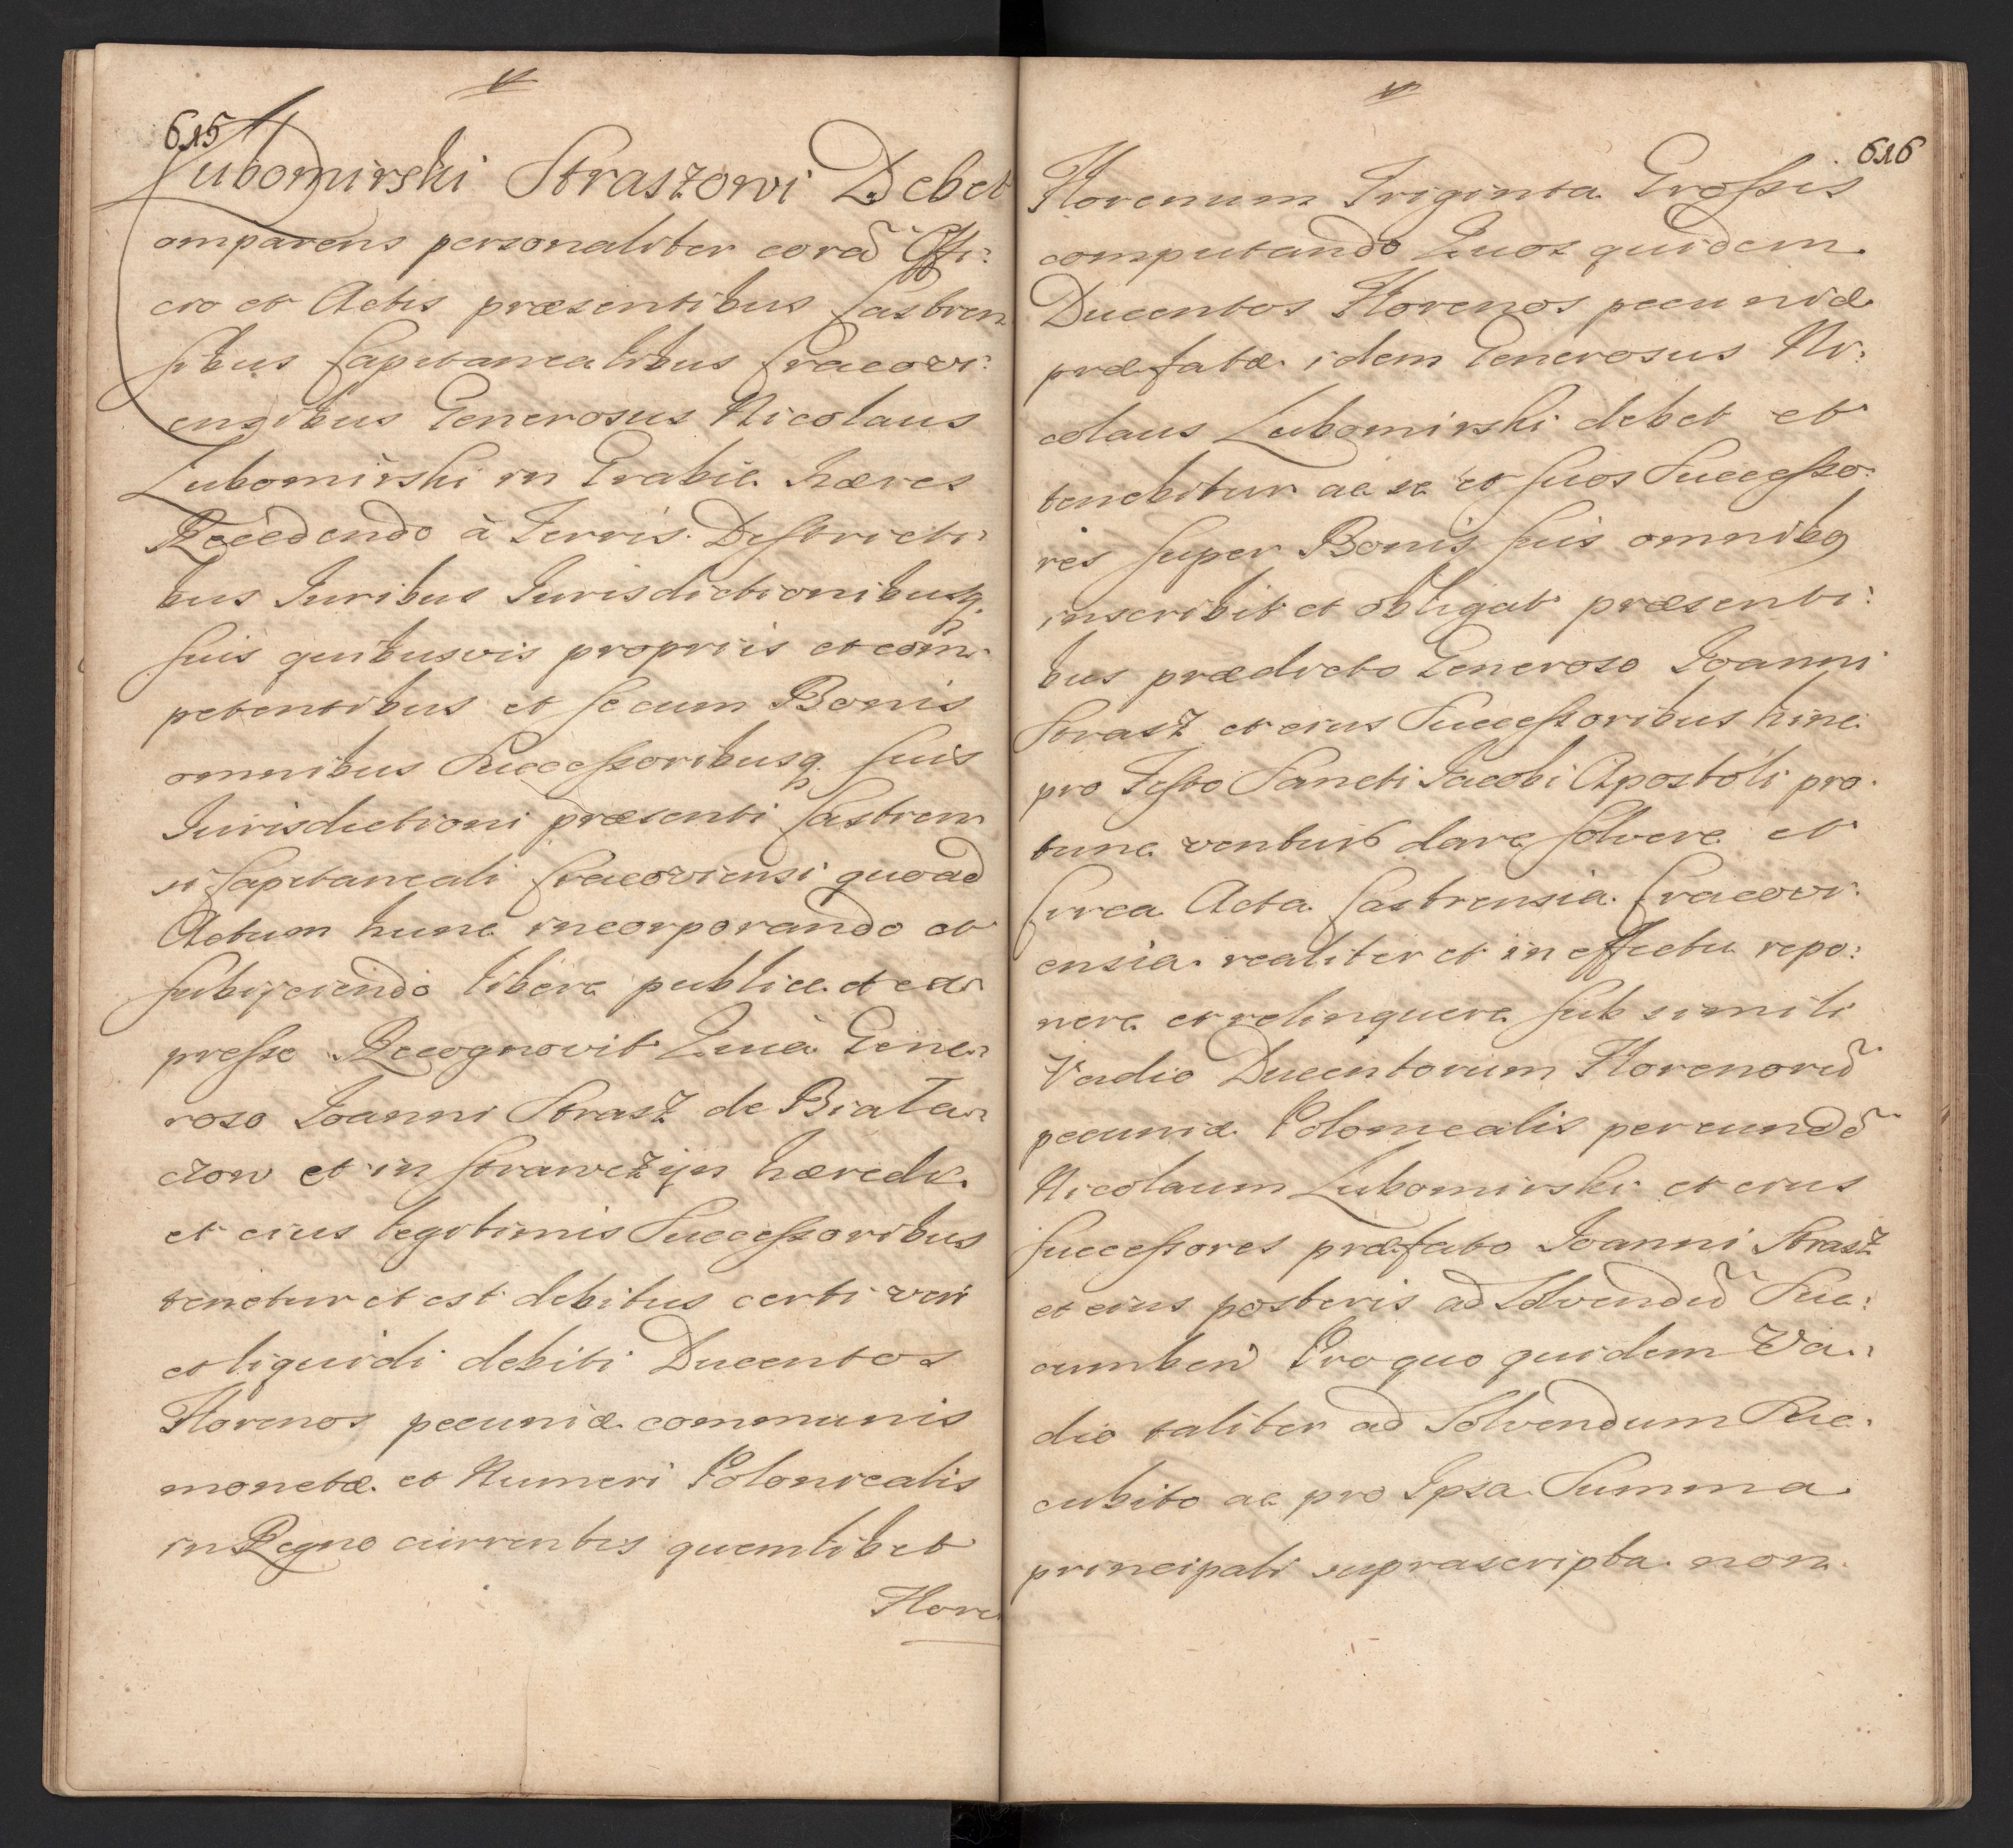 615
Lubomirski Straszowi Debet
Comparens personaliter corā Offi:
cio et Actis præsentibus Castren
sibus Capitanealibus Cracovi:
ensibus Generosus Nicolaus
Lubomirski in Grabie Hæres
Recedendo à Terris Districti:
bus Iuribus Iurisdictionibusq.
suis quibusvis propriis et com̄:
petentibus et se cum Bonis
omnibus Successoribusq. suis
Iurisdictioni præsenti Castren
si Capitaneali Cracoviensi quoad
Actum hunc incorporando et
subijciendo libere publice et ex:
presse Recognovit Quia Gene:
roso Joanni Strasz de Biała:
czow et in hæredi
et eius legitimis Successoribus
tenetur et est debitus certi veri
et liquidi debiti Ducentos
Florenos pecuniæ communis
monetæ et Numeri Polonicalis
in Regno currentis quemlibet
Flore
616
Florenum Triginta Grossis
computando Quos quidem
Ducentos Florenos pecuniæ
præfatæ idem Generosus Ni:
colaus Lubomirski debet et
tenebitur ac se et suos Successo:
res super Bonis suis omnibq
inscribit et obligat præsenti:
bus prædicto Generoso Joanni
Strasz et eius Successoribus hinc
pro Festo Sancti Jacobi Apostoli pro
tunc venturo dare solvere et
circa Acta Castrensia Cracovi:
ensia realiter et in effectu repo:
nere et relinquere sub simili
Vadio Ducentorum Florenorū
pecuniæ Polonicalis per eundē
Nicolaum Lubomirski et eius
Successores præfato Joanni Strasz
et eius posteris ad Solvendū Suc:
cumben̄ Pro quo quidem Va:
dio taliter ad Solvendum Suc:
cubito ac pro Ipsa Summa
principali suprascripta non